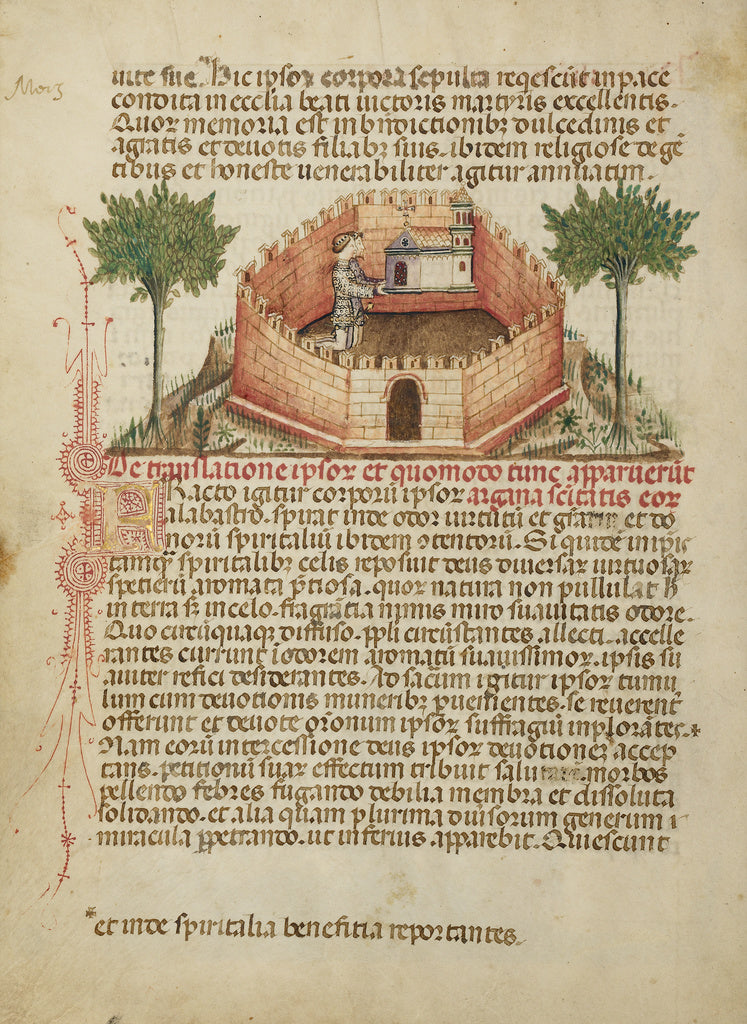 uite sue. Hic ipsoꝝ corpora sepulta reqescūt in pace
condita in ecclīa beati uictoris martyris excellentis.
Quoꝝ memoria est in bn̄dictionibꝫ dulcedinis et
a gratis et deuotis filiabꝫ suis. ibidem religiose degē
tibus et honeste uenerabiliter agitur annuatim.
De translatione ipsoꝝ et quomodo tunc apparuerūt
Facto igitur corporū ipsoꝝ argana scītatis eoꝝ
alabastro. spirat inde odor uirtutū et grār̄ et do
noꝝū spiritaliū ibidem ꝯtentorū. Si quidē in ip̄is
tamqꝫ spiritalibꝫ celis reposuit deus diuersaꝝ uirtuosaꝝ
specierū aromata p̄tiosa. quoꝝ natura non pullulat h̄
in terra sꝫ in celo. fragrātia nimis miro suauitatis odore.
Quo circūquaqꝫ diffuso. pp̄li circūstantes allecti. accelle
rantes currunt ī odorem aromatū suauissimoꝝ. ipsis su
auiter refici desiderantes. Ad sacum igitur ipsoꝝ tumu
lum cum deuotionis muneribꝫ ꝓuenientes. se reuerent̄
offerunt et deuote or̄onum ipsoꝝ suffragiū inplorātes.*
Nam eorū intercessione deus ipsoꝝ deuotiones accep
tans. petitionū suaꝝ effectum tribuit salutarē. morbos
pellendo febres fugando debilia membra et dissoluta
solidando. et alia quam plurima diuisorum generum
miracula ꝑpetrando. ut inferius apparebit. Quiescunt
*et inde spiritalia benefitia reportantes.